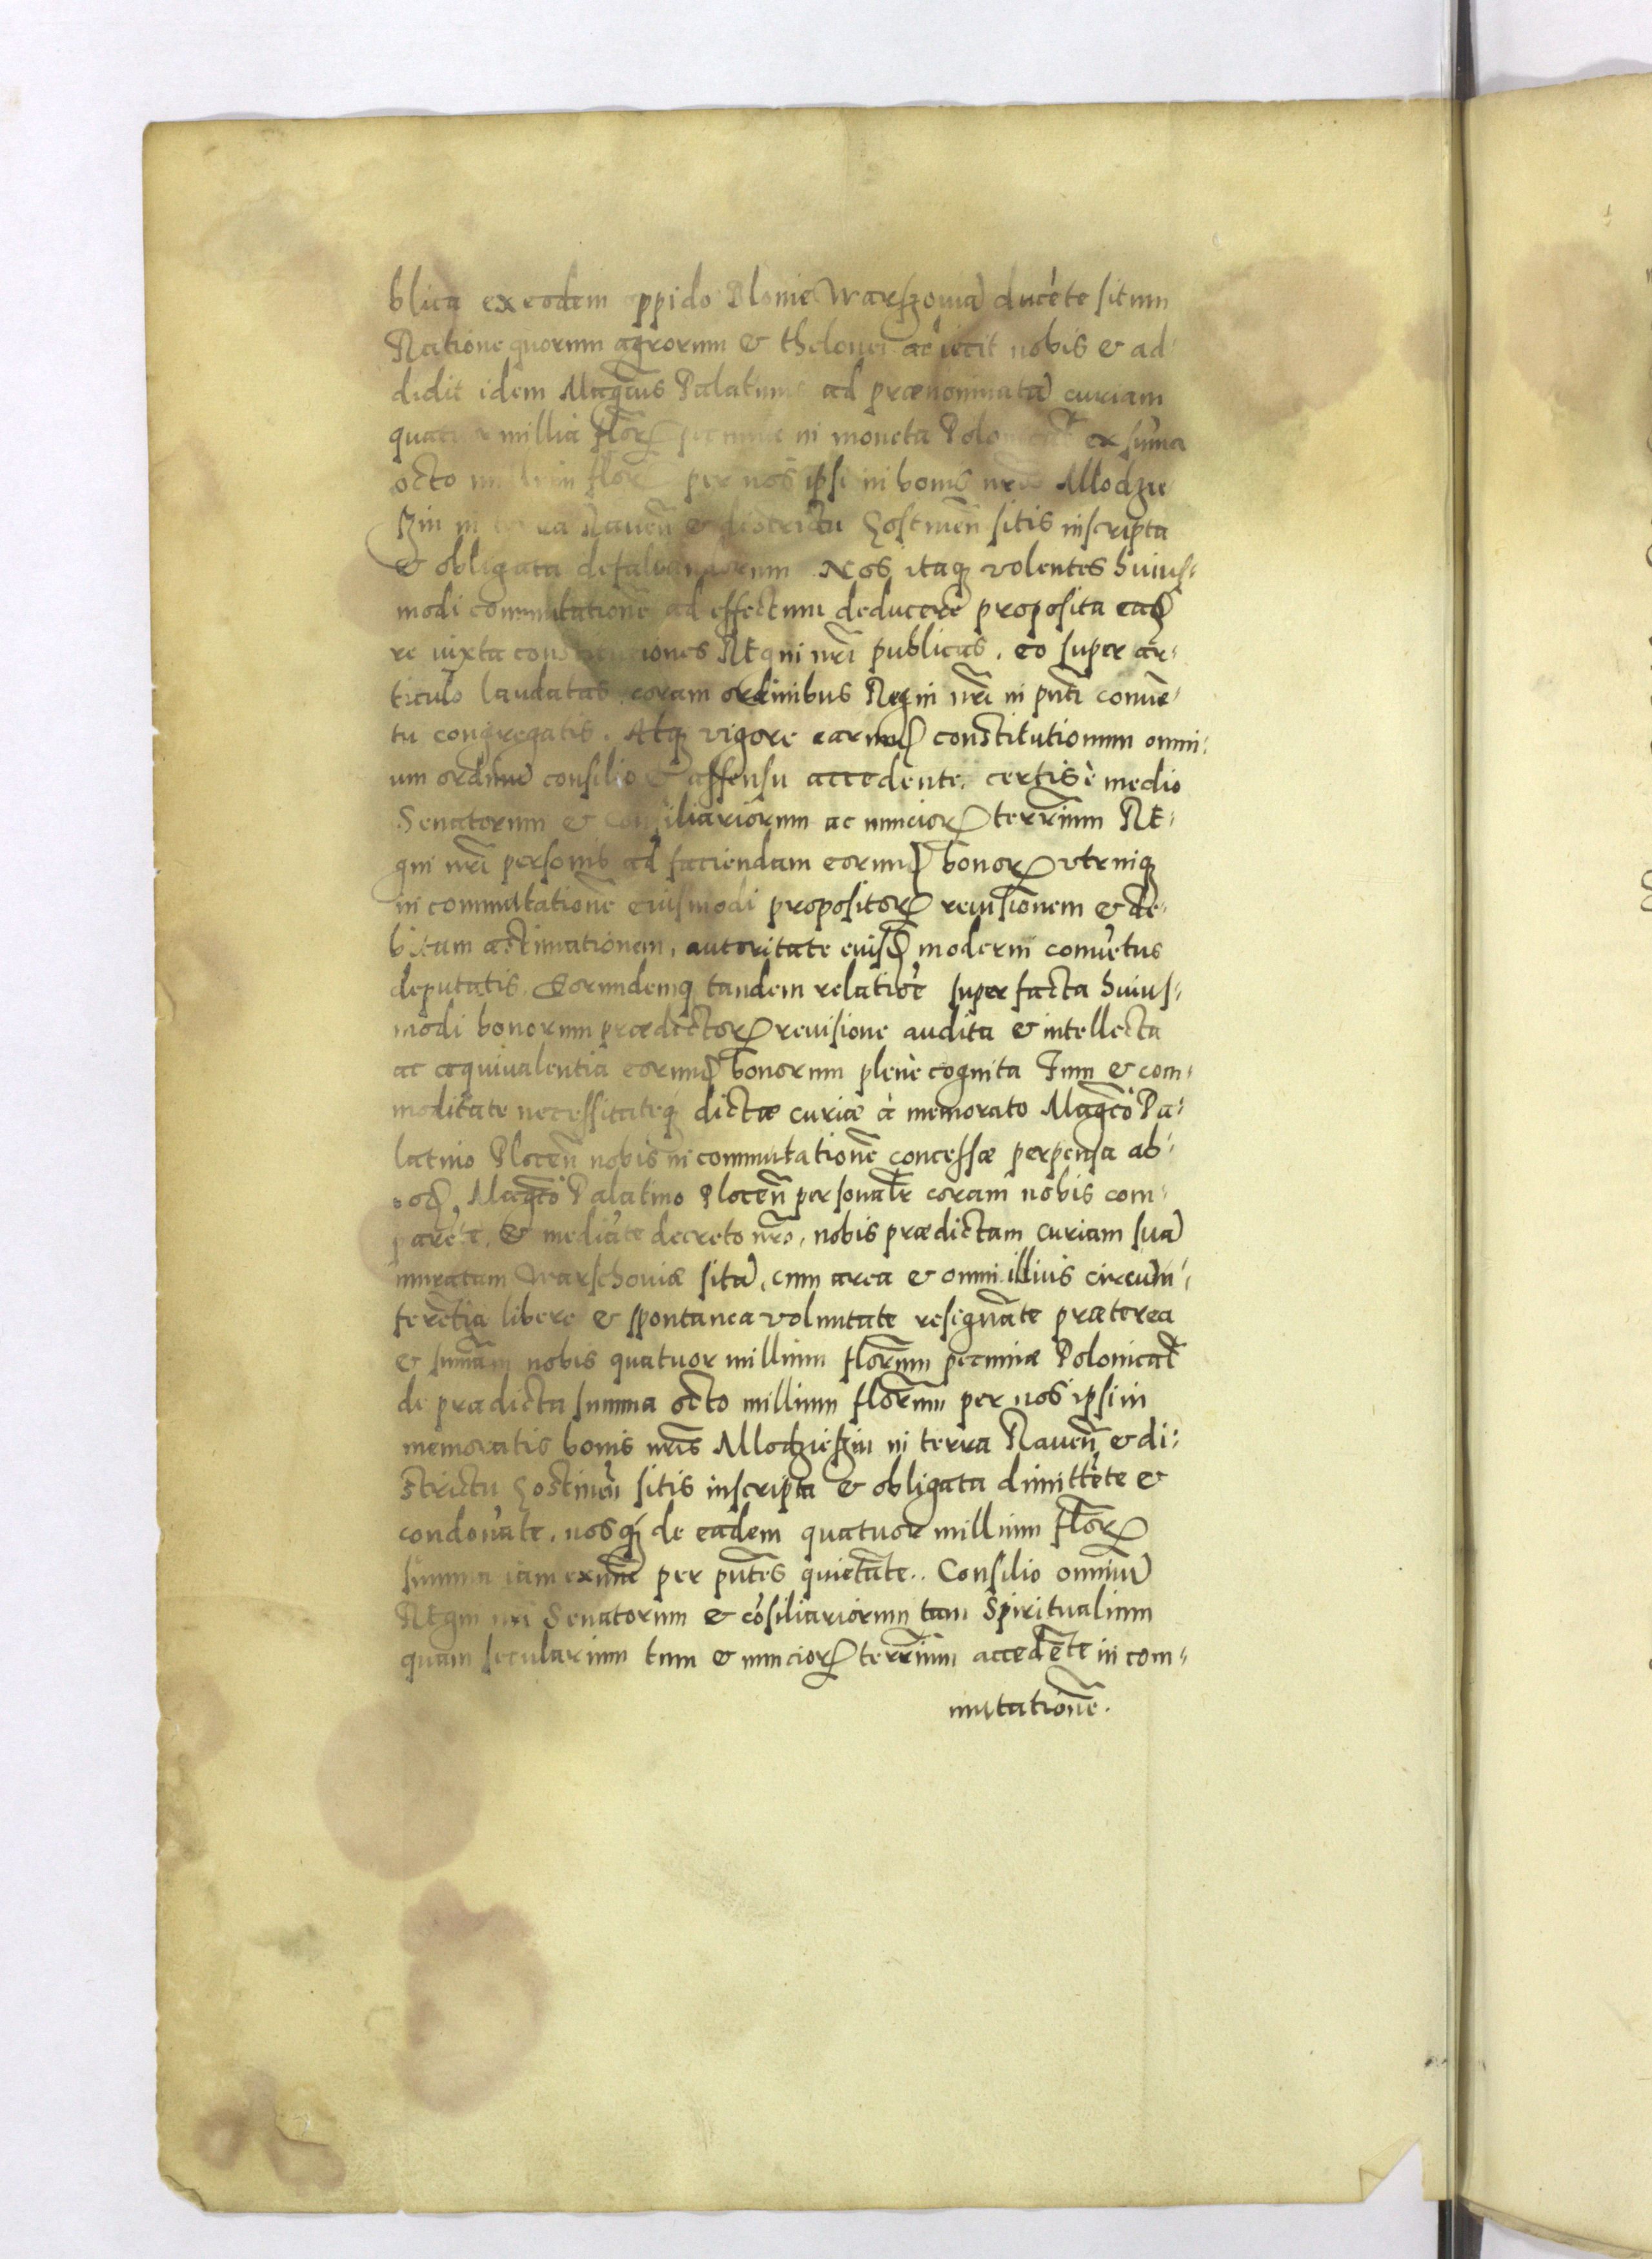 blica ex eodem oppido Blonie Warszouiã ducẽte situm
Ratione quorum agrorum & thelonei adiecit nobis & ad
didit idem Magcus Palatinus ad prænominatã curiam
quatuor millia flor pecuniæ in moneta Polonical ex sum̃a
octo millium flor per nos ipsi in bonis nris Mlodzie
szin in terra Rauen̄ & districtu Gostinen̄ sitis inscripta
& obligata defalcandorum Nos itaq volentes huius-
modi commutationẽ ad effectum deducere proposita ead
re iuxta constitutiones Regni nr̄i publicas, eo super ar-
ticulo laudatas coram ordinibus Regni nr̄i in pn̄ti conuẽ-
tu congregatis. Atq vigore earund constitutionum omni-
um ordinũ consilio & assensu accedente. certis è medio
Senatorum & Consiliariorum ac nuncior terr̄ium Re-
gni nr̄i personis ad faciendam eorund bonor vtrinq
in commutationẽ eiusmodi propositor reuisionem & de-
bitam æstimationem, autoritate eiusd moderni conuẽtus
deputatis. Eorundemq tandem relatiõe super facta huius-
modi bonorum prædictor reuisione audita & intellecta
ac æquiualentia eorund bonorum plenè cognita Tum & com-
moditate necessitateq dictæ curiæ à memorato Magco Pa-
latino Plocen̄ nobis in commutationẽ concessæ perpensa ab
eod, Magco Palatino Plocen̄ personalr coram nobis com-
parẽte, & mediãte decreto nr̄o, nobis prædictam curiam suã
muratam Warschouiæ sitã, cum area & omni illius circum-
ferẽtia libere & spontanea voluntate resignãte præterea
& sum̃am nobis quatuor millium florenum pecuniæ Polonical
de prædicta summa octo millium florenum per nos ipsi in
memoratis bonis nr̄is Mlodzieszin in terra Rauen̄ & di-
strictu Gostinen̄ sitis inscripta & obligata dimittẽte &
condonãte, nosq de eadem quatuor millium flor
summa iam ex nunc per pn̄tes quietãte. Consilio omniũ
Regni nr̄i Senatorum & cõsiliariorum tam Spiritualium
quam secularium tum & nuncior terr̄ium accedẽte in com-
mutationẽ.